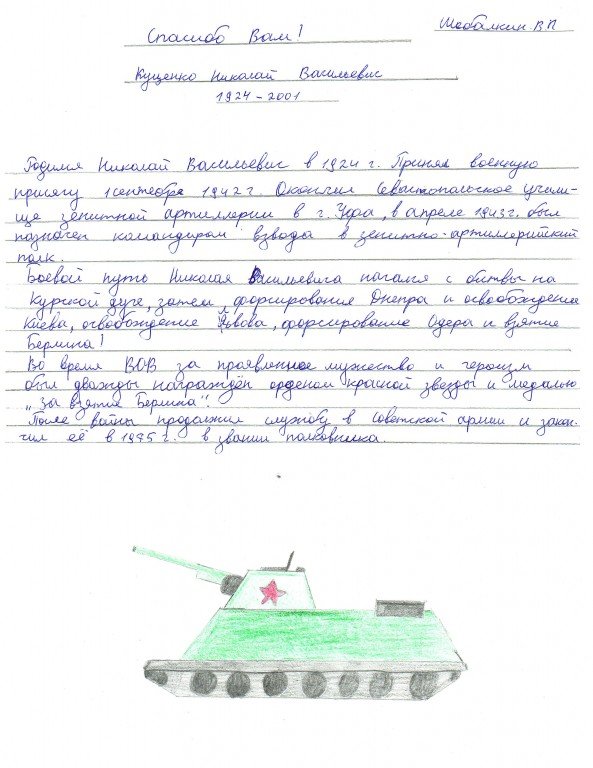 Спасибо Вам!
Шебалкин.В.П
Куценко Николай Васильевис
1924-2001
Родился Николай Васильевис в 1924 г. Принял военную
присягу 1 сентября 1942 г. Окончил Севастопольское учили-
ще зенитной артиллерии в г. Уфа, в апреле 1943 г. был
назначен командиром взвода в зенитно-артиллерийский
полк.
Боевой путь Николая Васильевича начался с битвы на
Курской дуге, затем, форсирование Днепра и освобождение
Киева, освобождение Львова, форсирование Одера и взятие
Берлина!
Во время ВОВ за проявленное мужество и героизм
был дважды награждён орденом красной звезды и медалью
„За взятие Берлина".
После войны продолжил службу в советской армии и закон-
чил её в 1975 г. в звании полковника.